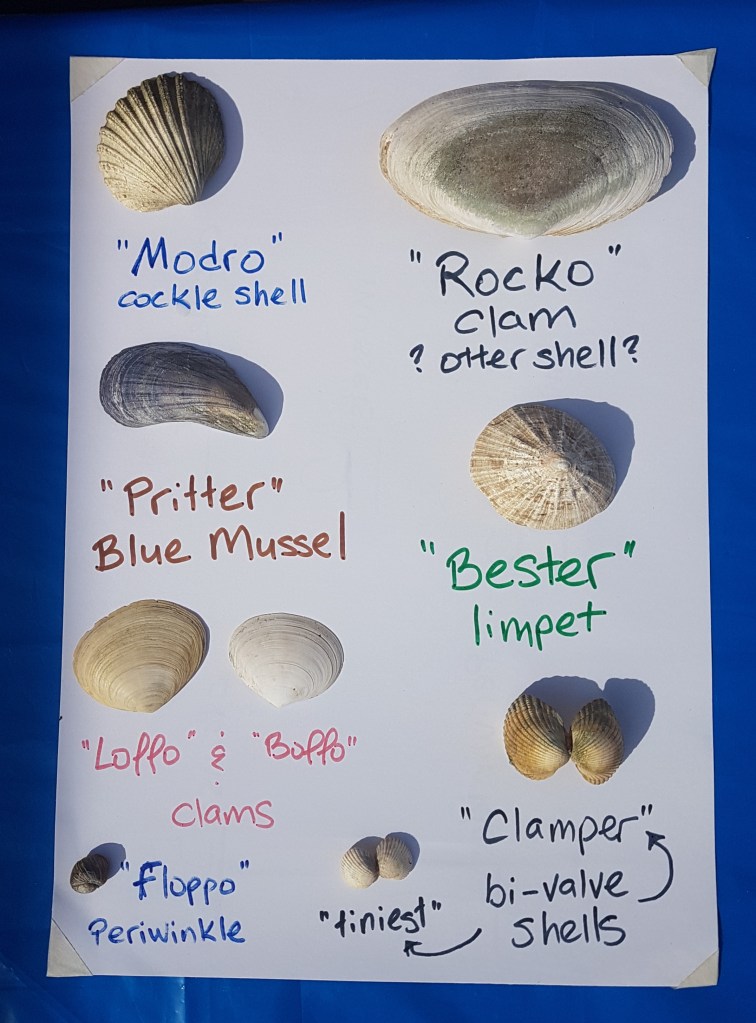 "Modro"
cockle shell
"Rocko"
clam
? otter shell?
"Pritter"
Blue Mussel
"Bester"
limpet
"Loffo" & "Boffo"
clams
"Clamper"
bi-valve
shells
"tiniest"
"Floppo"
Periwinkle